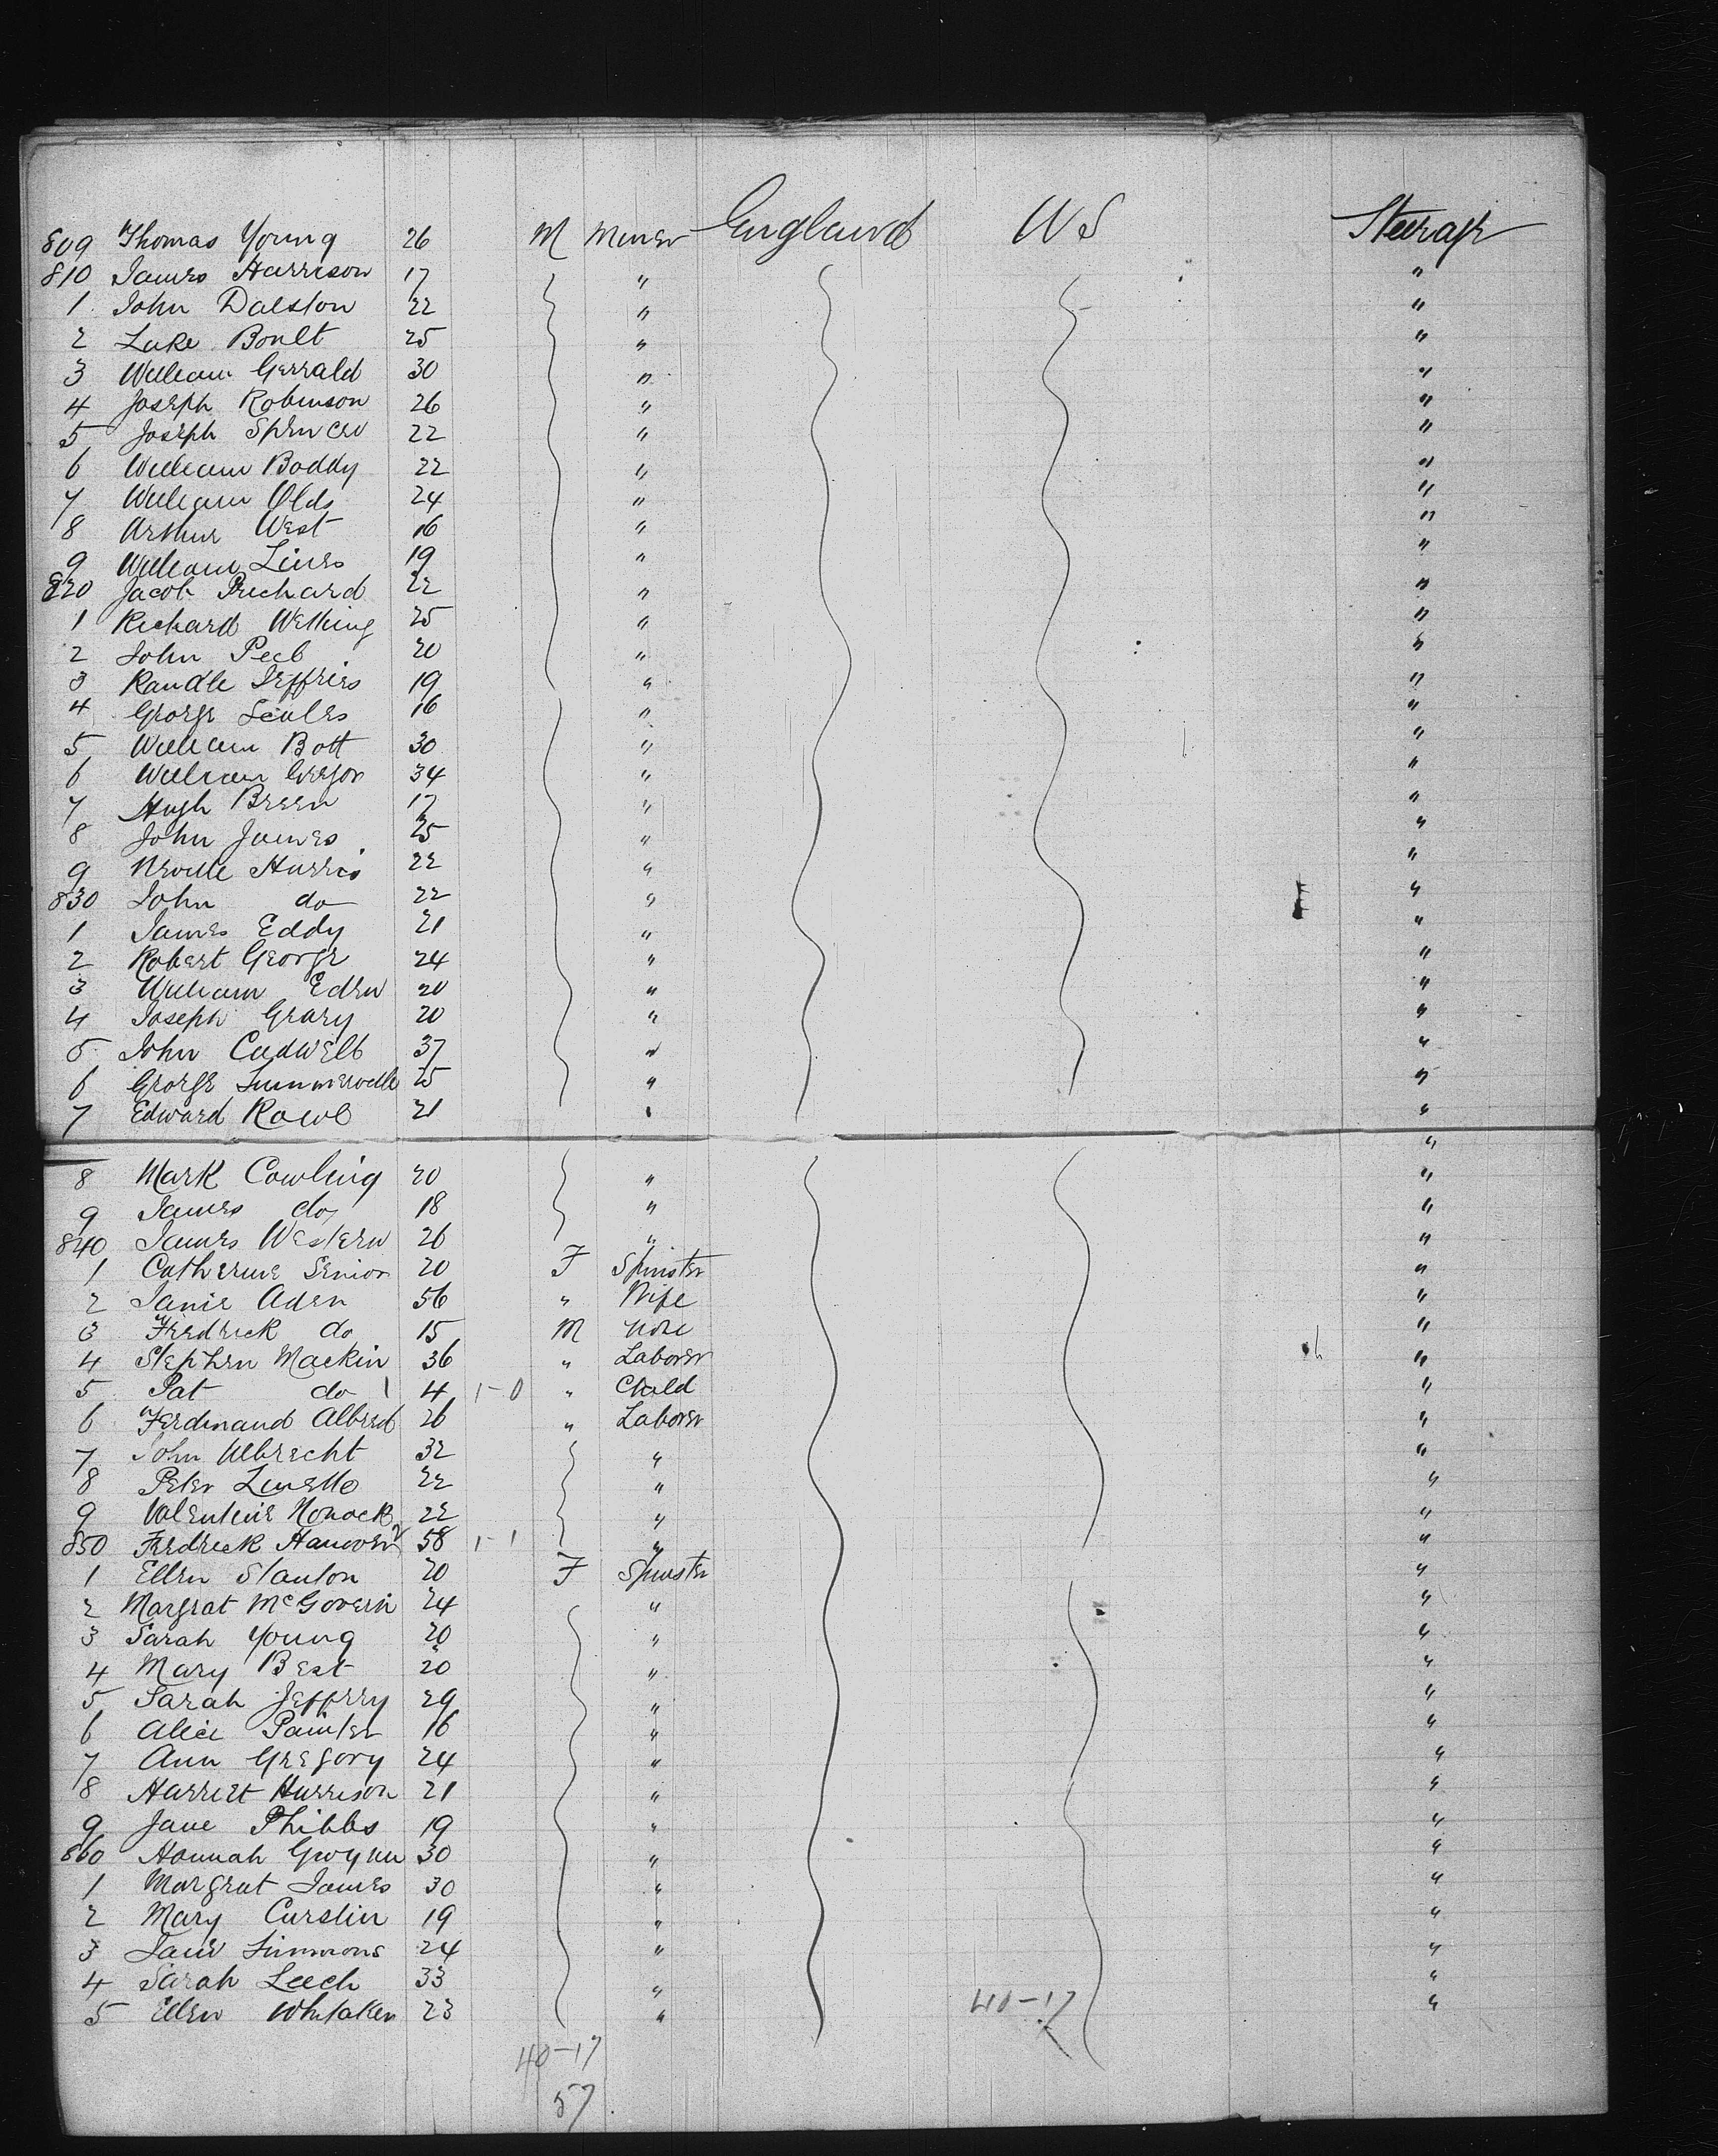 809 Thomas Young 26 M Miner England U S Steerage
810 James Harrison 17 " "
1 John Dalston 22 " "
2 Luke Boult 25 " "
3 William Gerrald 30 " "
4 Joseph Robinson 26 " "
5 Joseph Spencer 22 " "
6 William Boddy 22 " "
7 William Olds 24 " "
8 Arthur West 16 " "
9 William Lines 19 " "
820 Jacob Prichard 22 " "
1 Richard Welling 25 " "
2 John Peel 20 " "
3 Randle Jeffries 19 " "
4 George Scules 16 " "
5 William Bott 30 " "
6 William Gregor 34 " "
7 Hugh Breen 17 " "
8 John James 25 " "
9 Harris 22 " "
830 John do 22 " "
1 James Eddy 21 " "
2 Robert George 24 " "
3 William Eden 20 " "
4 Joseph Grary 20 " "
5 John Cudwell 37 " "
6 George Summerville 25 " "
7 Edward Rowe 21 " "
"
8 Mark Cowling 20 " "
9 James do 18 " "
840 James Western 26 " "
1 Catherine Senior 20 F Spinster "
2 Janie Aden 56 " Wife "
3 Fredrick do 15 M None "
4 Stephen Mackin 36 " Laborer "
5 Pat do 1 4 1-0 " Child "
6 Ferdinand Albred 26 " Laborer "
7 John Albrecht 32 " "
8 Peter 22 " "
9 Valentine 22 " "
850 Fredrick Hanover 58 1-1 " "
1 Ellen Stanton 20 F Spinster "
2 Margrat McGovern 24 " "
3 Sarah Young 20 " "
4 Mary Best 20 " "
5 Sarah Jeffrey 29 " "
6 Alice Painter 16 " "
7 Ann Gregory 24 " "
8 Harriet Harrison 21 " "
9 Jane Phibbs 19 " "
860 Hannah Gwynn 30 " "
1 Margrat James 30 " "
2 Mary Curslin 19 " "
3 Jane Simmons 24 " "
4 Sarah Leech 33 " "
5 Ellen Whitaker 23 " 40-17 "
40-17
57